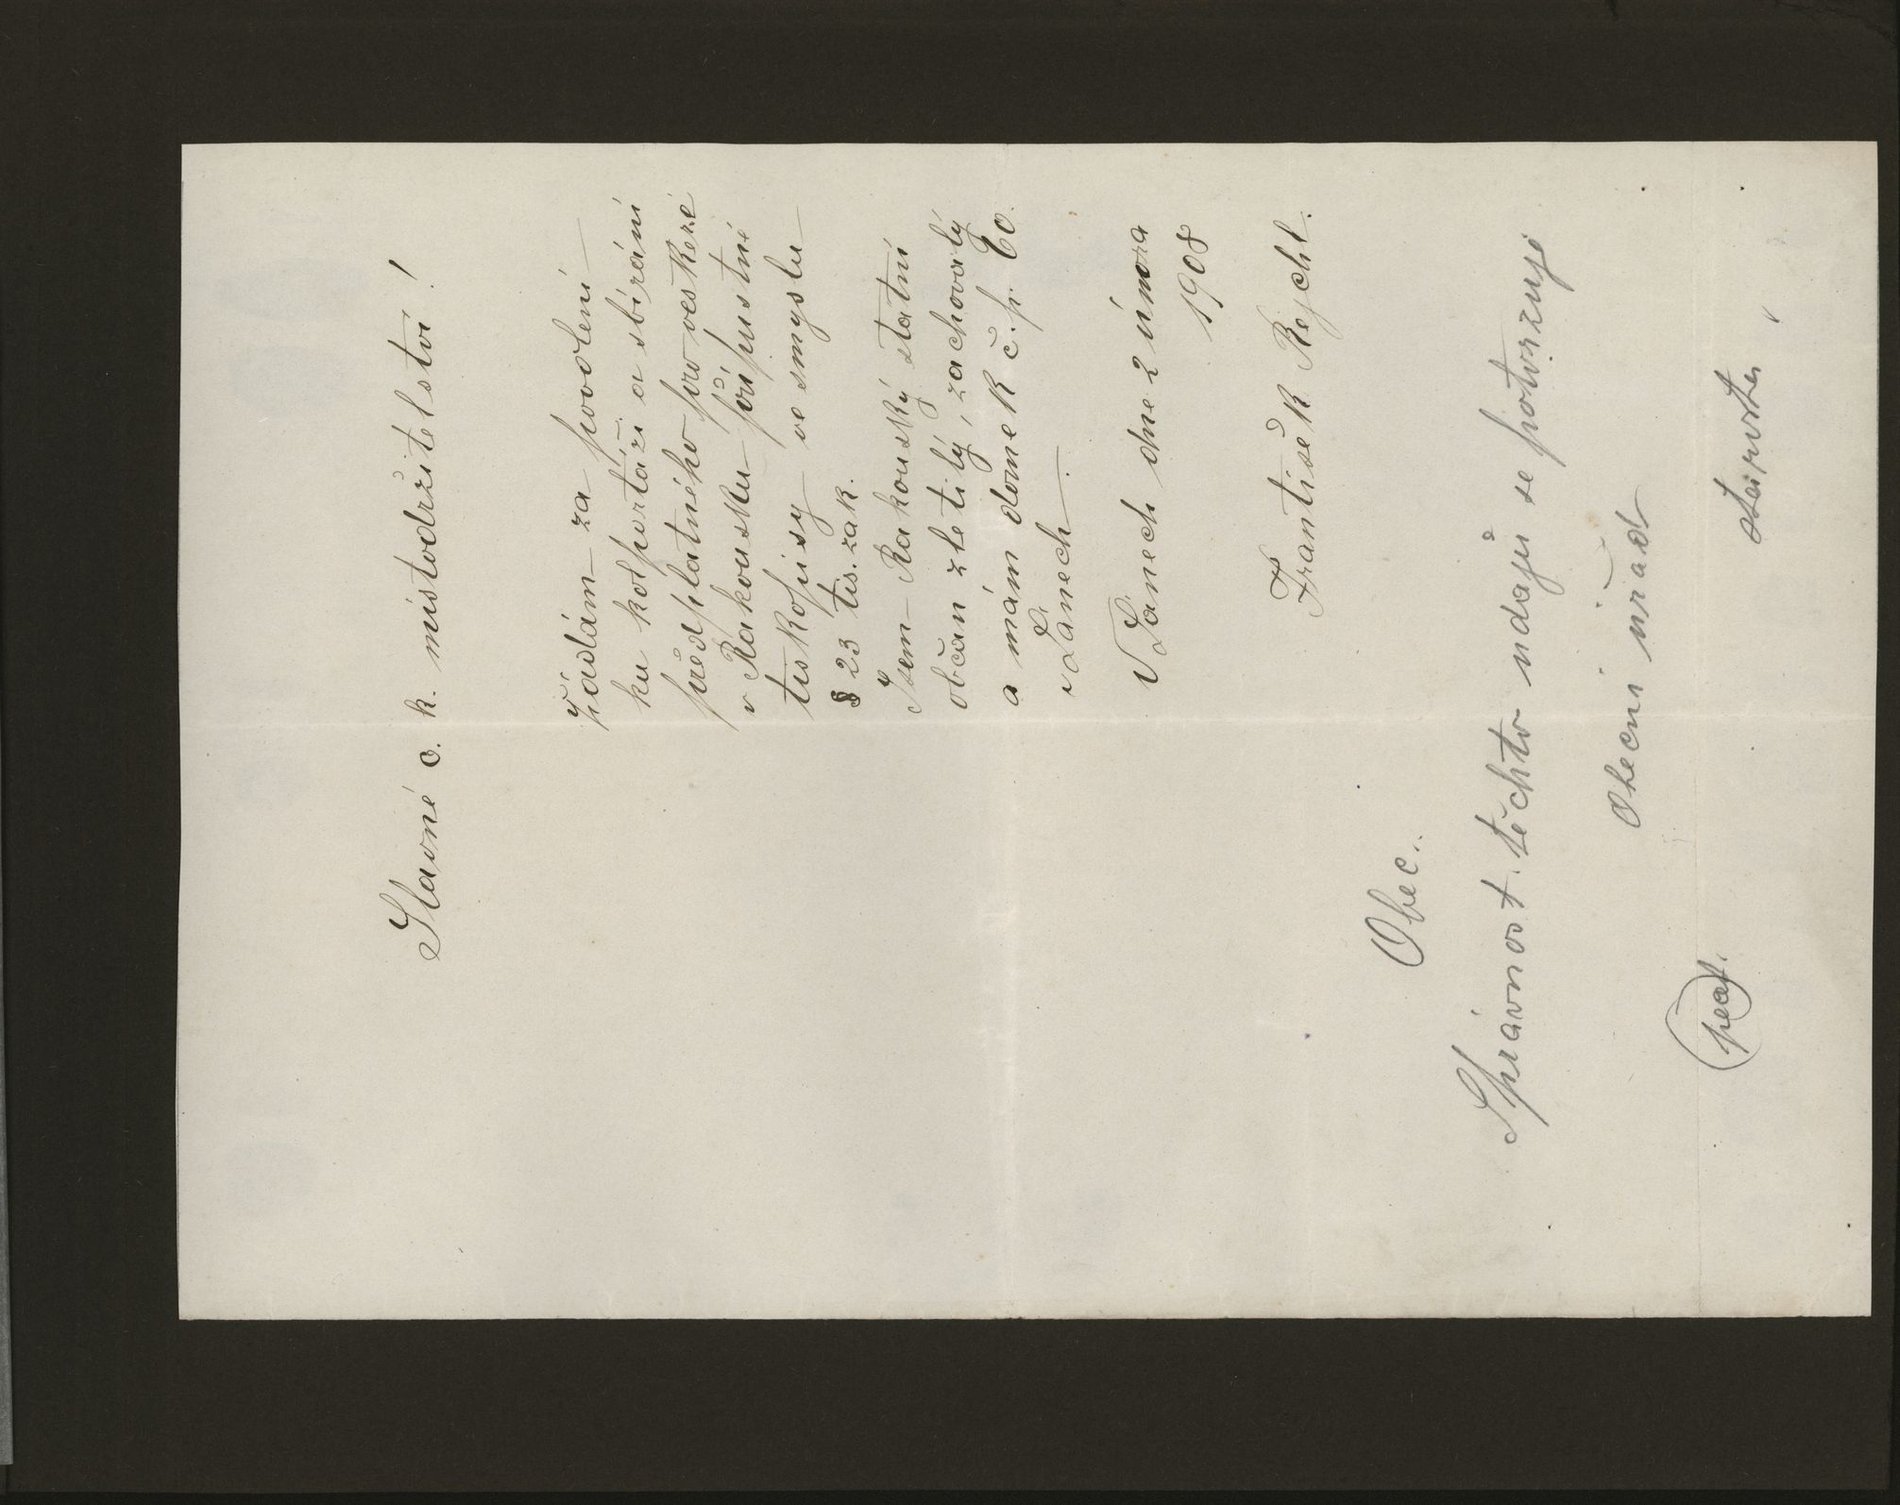 Slavné c. k. místodržitelství!
Žádám za povolení
ku kolportáži a sbírání
předplatného pro veškeré
v Rakousku přípustné
tiskopisy ve smyslu
§ 23 tis. zak.
Jsem Rakouský statní
občan zletilý, zachovalý
a mám domek č. p. 60.
v Lánech.
V Lánech dne 2 února
1908
František Rejchl.
Obec.
Správnost těchto udajů se potvrzuje
Obecni úřad
starosta
pečeť.